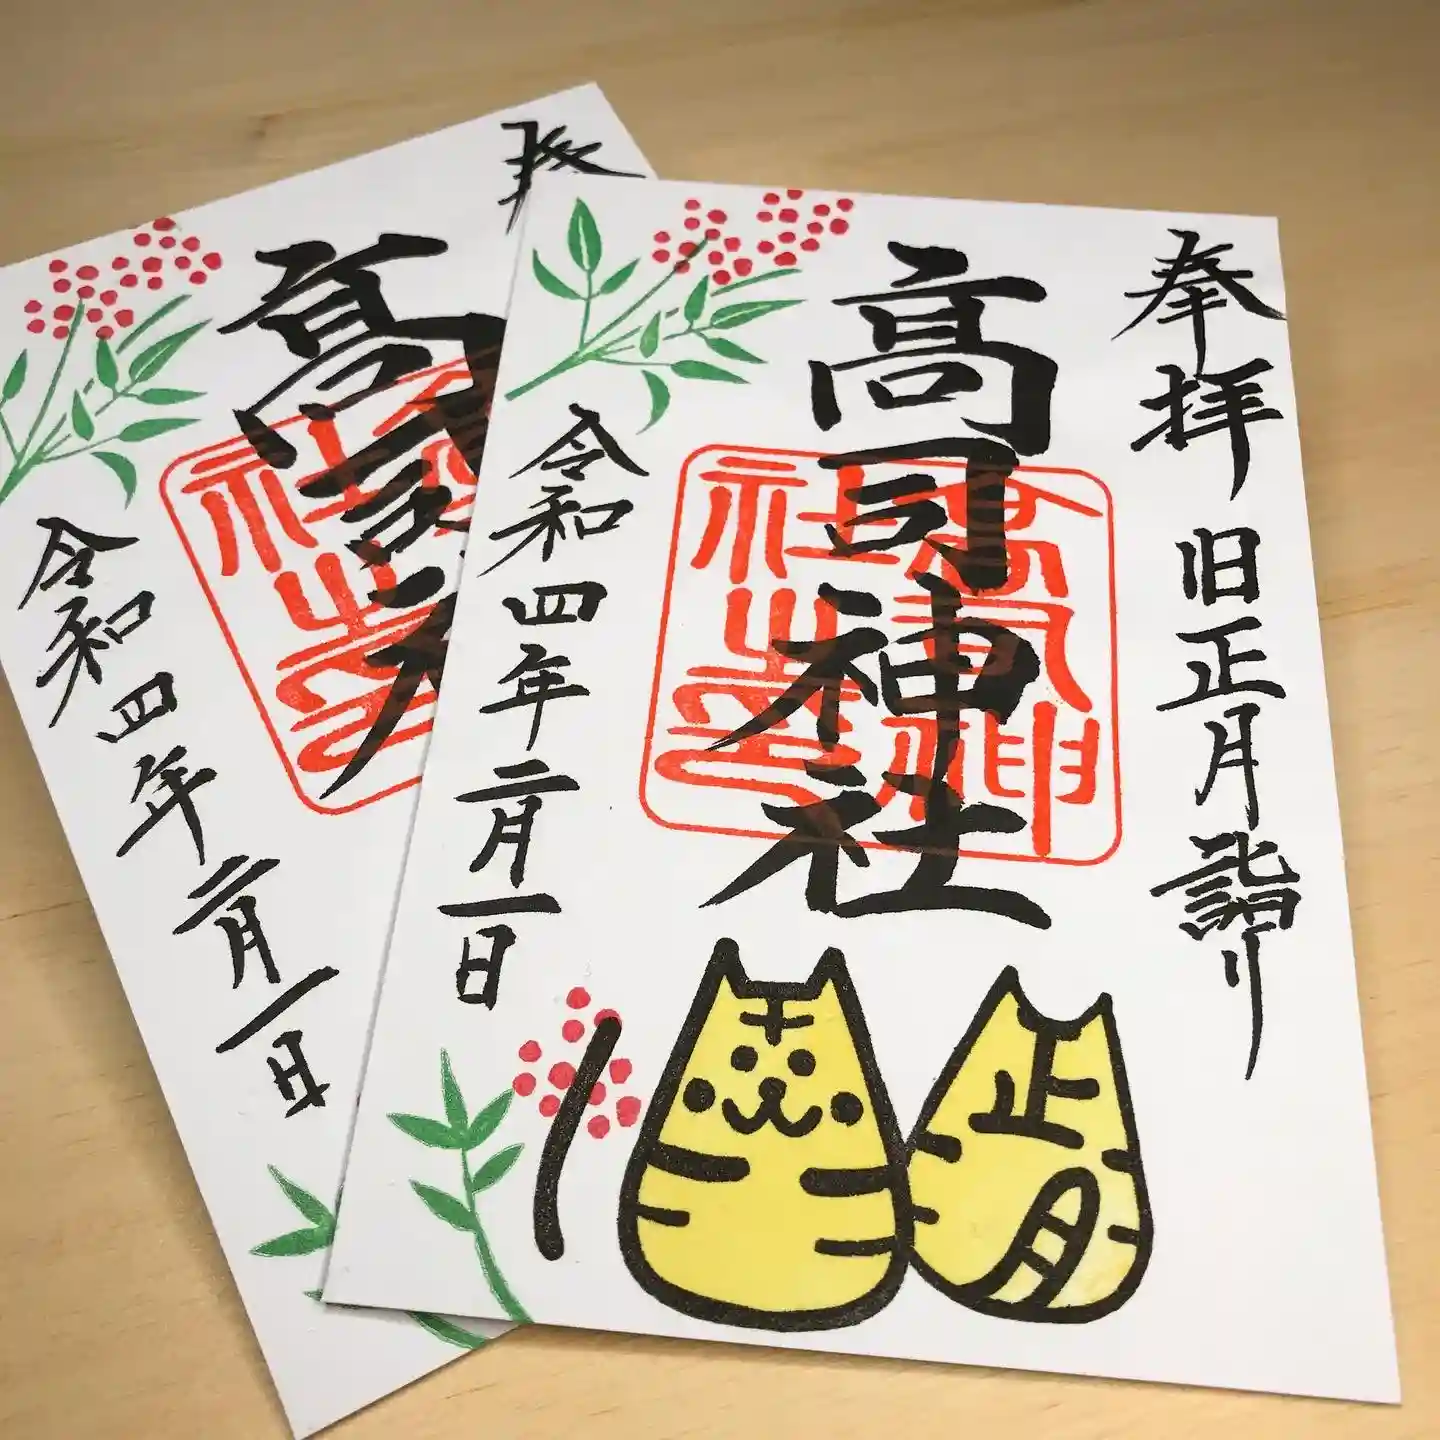 奉拝
旧正月詣り
高司神社
高司神社之印
令和四年二月一日
正月
奉拝
高司神
令和四年二月一日